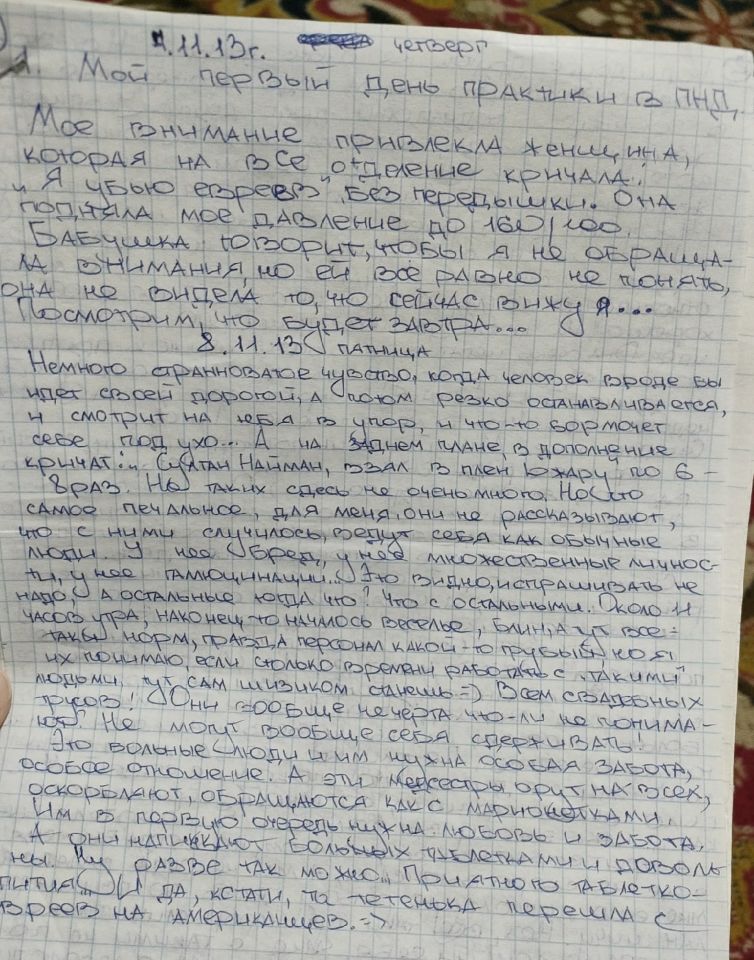 7.11.13г. четверг
1. Мой первый день практики в ПНД
Мое внимание привлекла женщина,
которая на все отделение кричала:
"Я убью евреев" без передышки. Она
подняла мое давление до 160/100.
Бабушка говорит, чтобы я не обраща-
ла внимания, но ей всё равно не понять,
она не видела то, что сейчас вижу я...
Посмотрим, что будет завтра...
8.11.13 пятница
Немного странноватое чувство, когда человек вроде бы
идет своей дорогой, а потом резко останавливается,
и смотрит на тебя в упор, и что-то бормочет
себе под ухо... А на заднем плане, в дополнение
кричат: "Султан Найман, взял в плен Южару" по 6-
8 раз. Но таких здесь не очень много. Но что
самое печальное, для меня, они не рассказывают,
что с ними случилось, ведут себя как обычные
люди. У нее бред, у нее множественные личнос-
ти, у нее галюцинации... Это видно, и спрашивать не
надо, а остальные тогда что? Что с остальными.. Около 11
часов утра, наконец-то началось веселье, блин, а тут все-
таки норм, правда персонал какой-то грубый, но я
их понимаю, если столько времени работать с "такими"
людьми, тут сам шизиком станешь =) Всем свадебных
трусов! Они вообще не черта что-ли не понима-
ют? Не могут вообще себя сдерживать!
Это больные люди и им нужна особая забота,
особое отношение. А эти медсестры орут на всех,
оскорбляют, обращаются как с марионетками.
Им в первую очередь нужна любовь и забота.
А они напичкают больных таблетками и доволь
ны. Ну разве так можно... Приятного таблетко-
пития... И да, кстати, та тетенька перешла с
евреев на американцев. =>